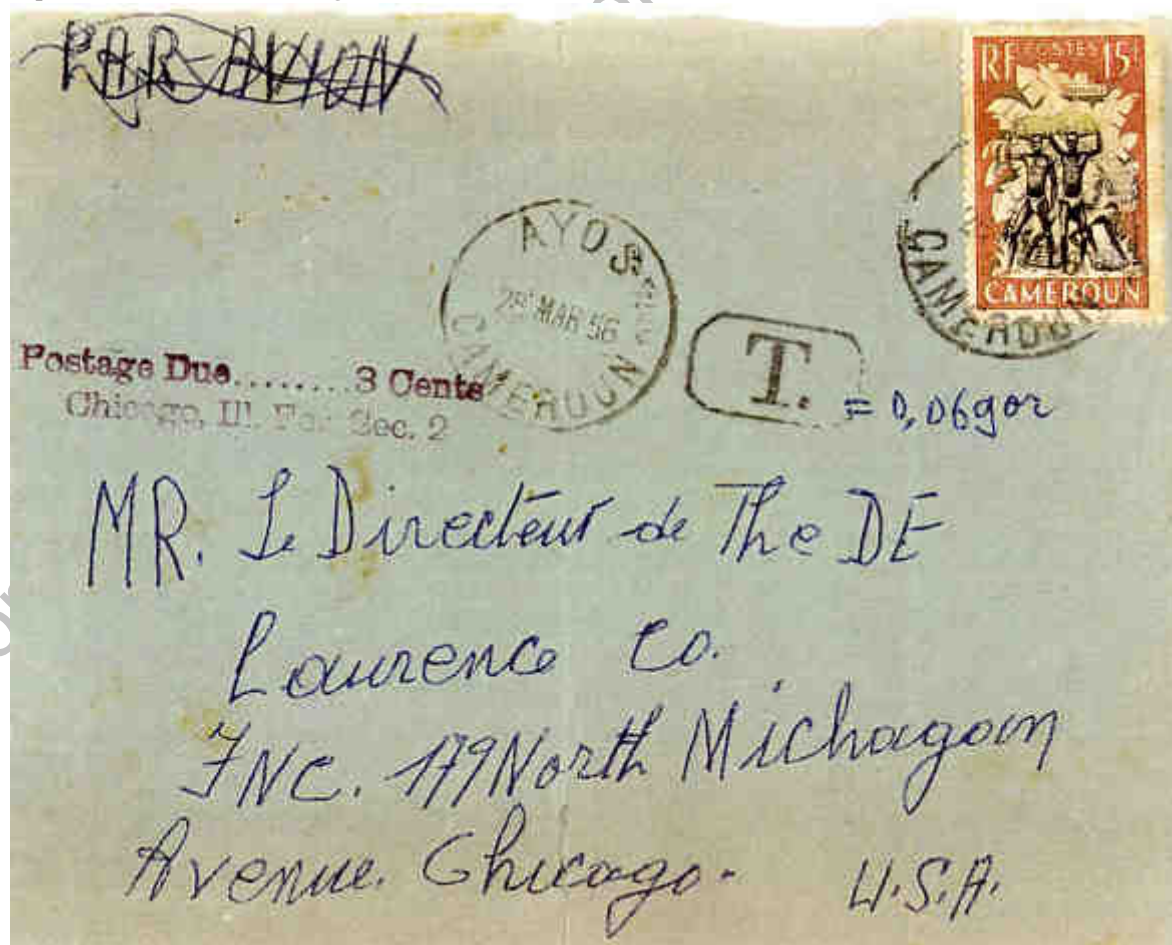 PAR-AVION
RF POSTES 15F
CAMEROUN
CAMEROUN
AYOS
28 MAR 56
CAMEROUN
T.
= 0,06gor
Postage Due........3 Cents
Chicago, Ill. Sec. 2
MR. Le Directeur de The DE
Lawrence Co.
INC. 179 North Michagan
Avenue. Chicago. U.S.A.